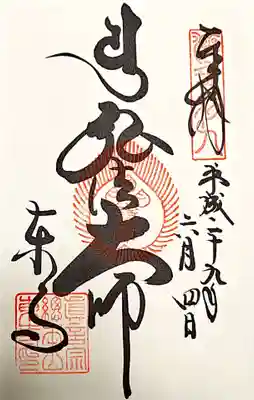 奉拝
平成二十九年
六月四日
弘法大師
東寺
眞言宗
總本山